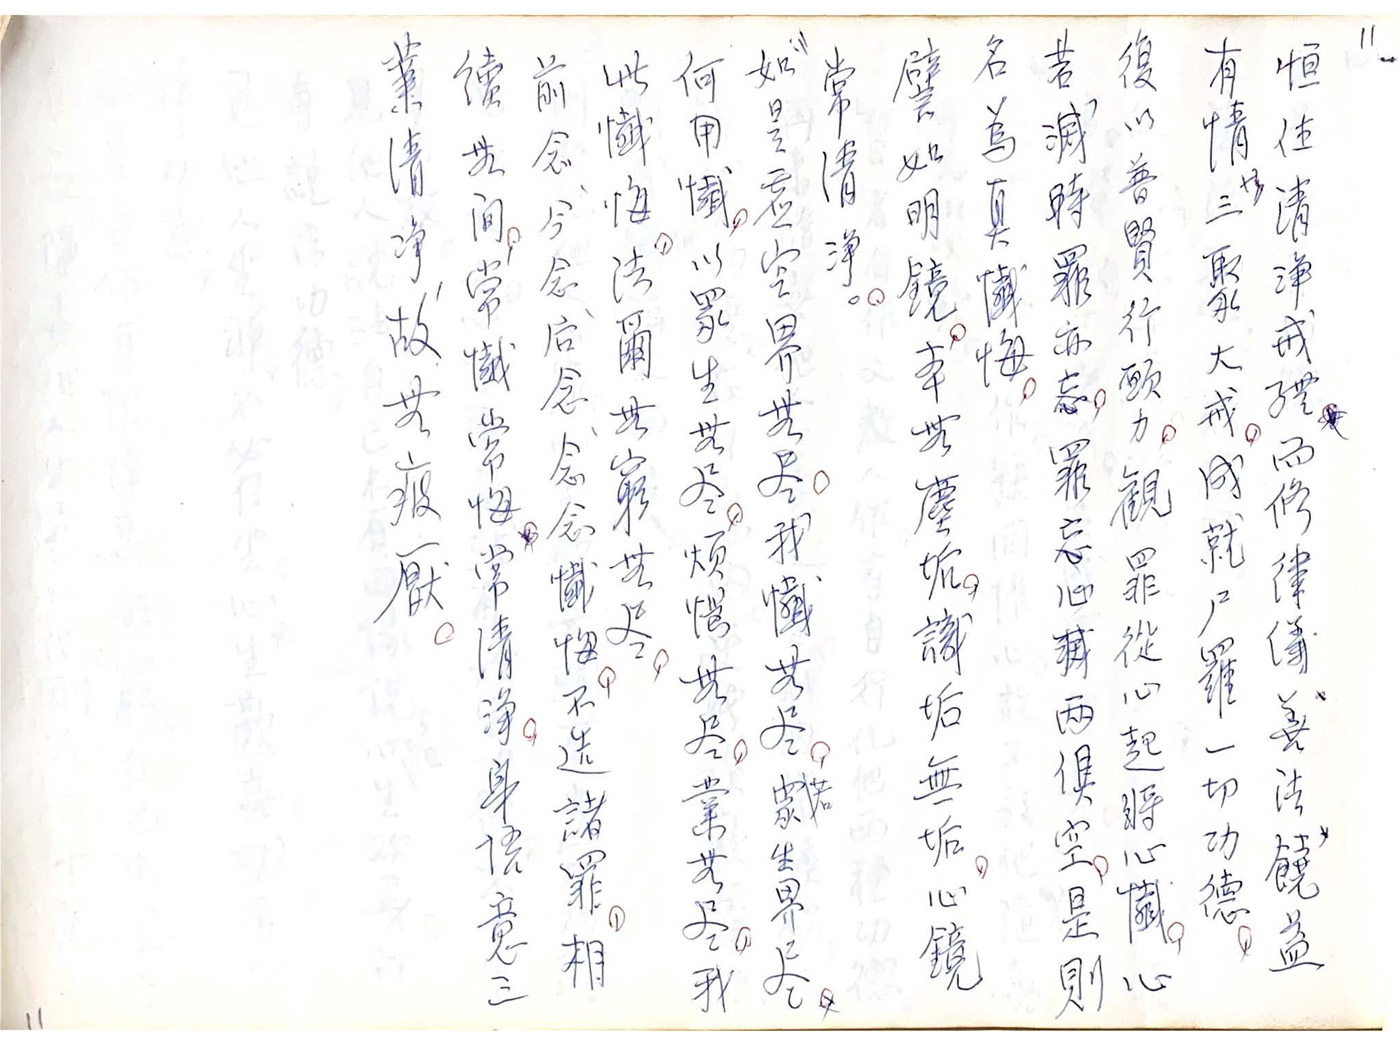 11
恒住清淨戒體而修律儀、善法、饒益
有情等三聚大戒,成就尸羅一切功德,
復以普賢行願力,觀罪從心起將心懺,心
若滅時罪亦忘,罪忘心滅兩俱空,是則
名為真懺悔,
譬如明鏡,本無塵垢,識垢無垢,心鏡
常清淨。
如是虛空界無尽我懺無尽,若眾生界尽
何用懺,以眾生無尽,煩惱無尽,業無尽,我
此懺悔,法爾無窮無尽,
前念、今念、后念、念念懺悔,不造諸罪,相
續無间,常懺常悔常清淨,身语意三
業清淨故,無疲厭。
11